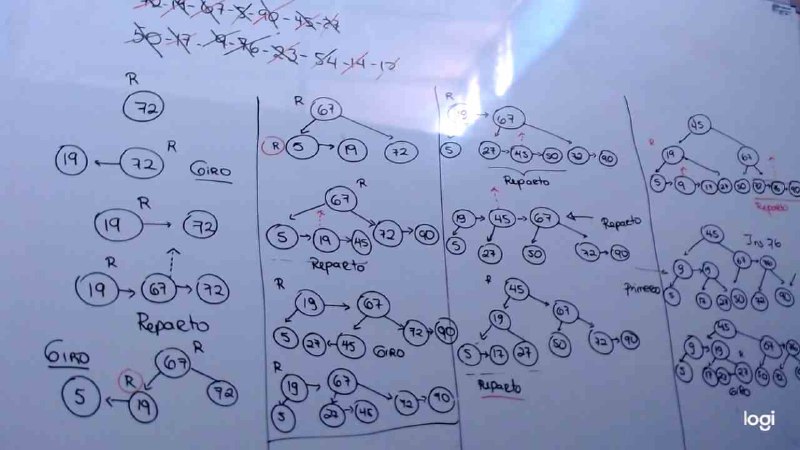 72-19-67-5-90-45-27
50-17-9-76-23-54-14-12
R
72
19 72 R GIRO
R
19 72
R
19 67 72
Reparto
GIRO R
R 67
5 19 72
R 67
R 5 19 72
R
67
5 19 45 72 90
Reparto
R
19 67
5 27 45 72 90
GIRO
R
19 67
5 27 45 72 90
R
19 67
5 27 45 50 72 90
Reparto
19 45 67 Reparto
5 27 50 72 90
R
45
19 67
5 17 27 50 72 90
Reparto
45
R
19 67
5 9 17 27 50 72 76 90
Reparto
45 Ins 76
9 19 67 76
5 17 27 50 72 90
Primero
45
9 19 67 76
R
5 17 27 50 72
GIRO
logi